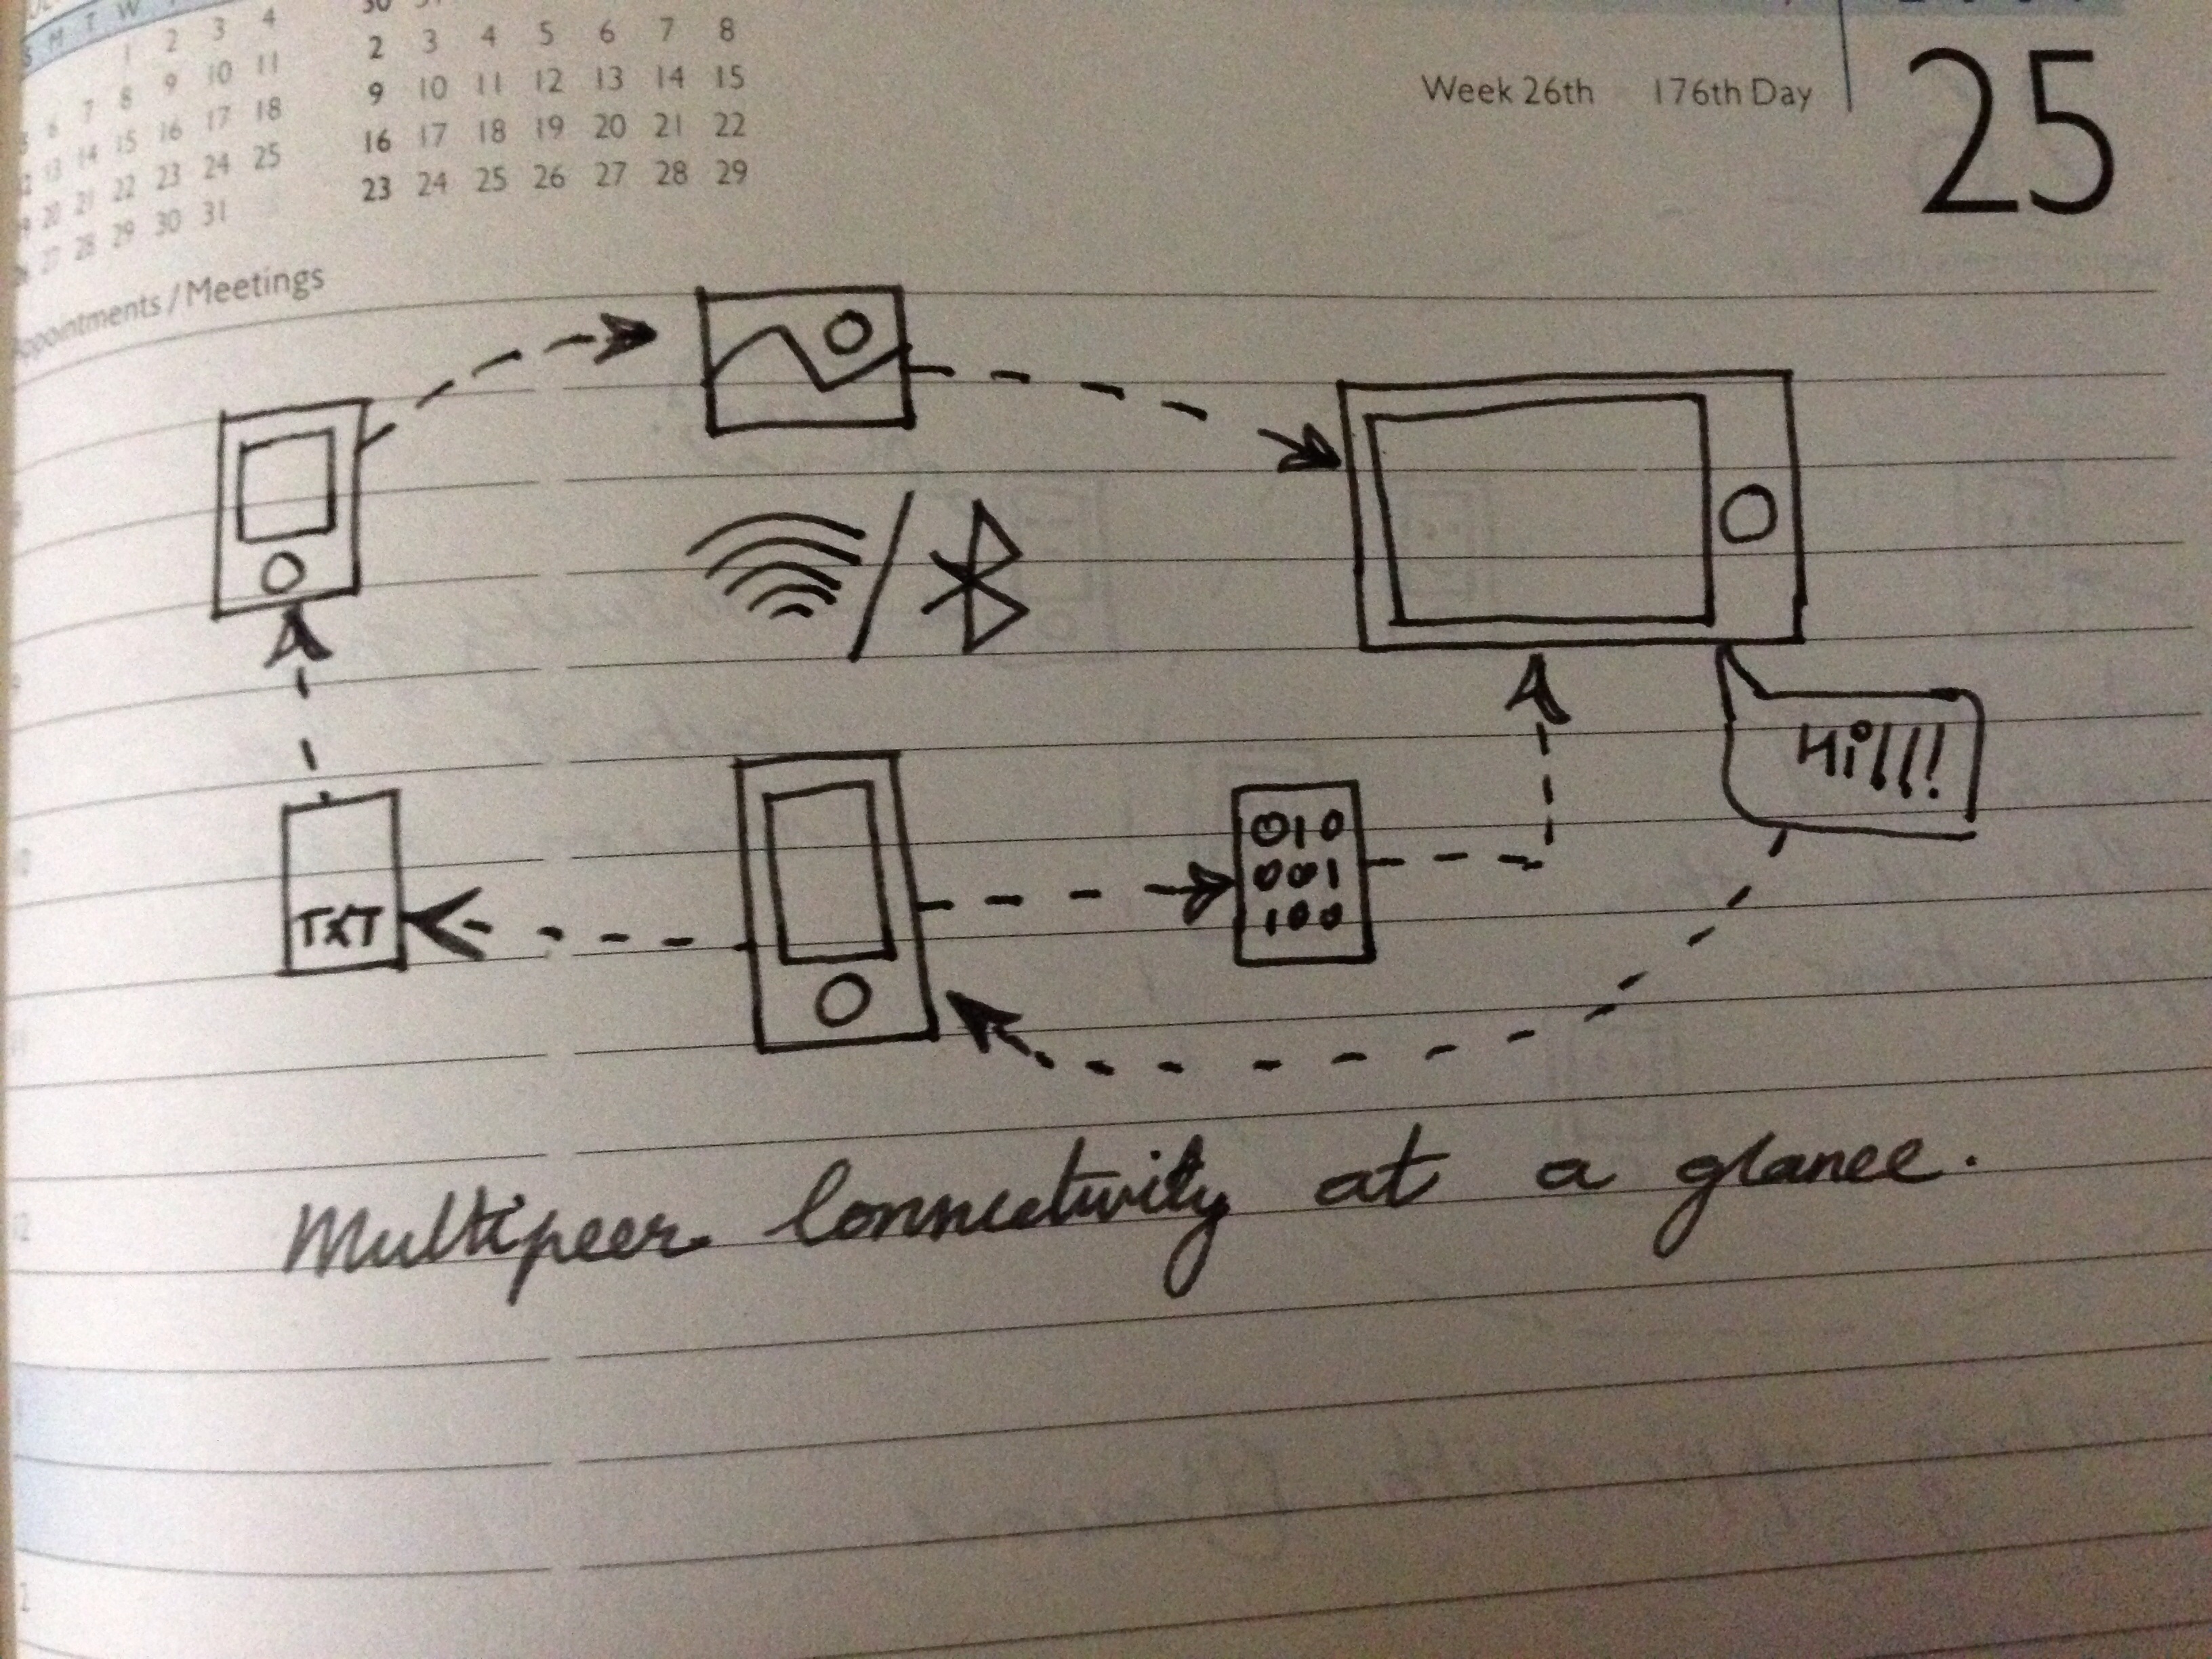 S M T W
1 2 3 4
6 7 8 9 10 11
13 14 15 16 17 18
20 21 22 23 24 25
27 28 29 30 31
30 31
2 3 4 5 6 7 8
9 10 11 12 13 14 15
16 17 18 19 20 21 22
23 24 25 26 27 28 29
Week 26th 176th Day
25
Appointments / Meetings
Hi!!!!
TXT
010
001
100
Multipeer Connectivity at a glance.